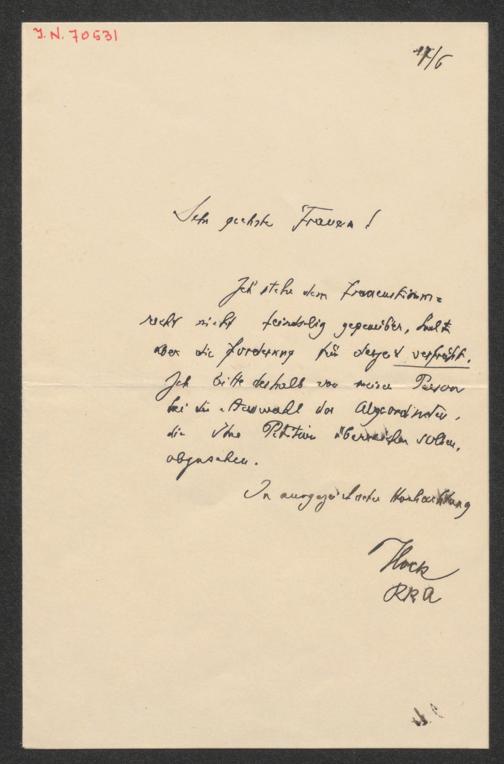 J.N. 70631
17/6
Sehr geehrte Frauen!
Ich stehe dem Frauenstimm=
recht nicht feindselig gegenüber, halte
aber die Forderung für derzeit verfrüht.
Ich bitte deshalb von meiner Person
bei der Auswahl der Abgeordneten,
die Ihre Petition überreichen sollen,
abzusehen.
In ausgezeichneter Hochachtung
Hock
RRA